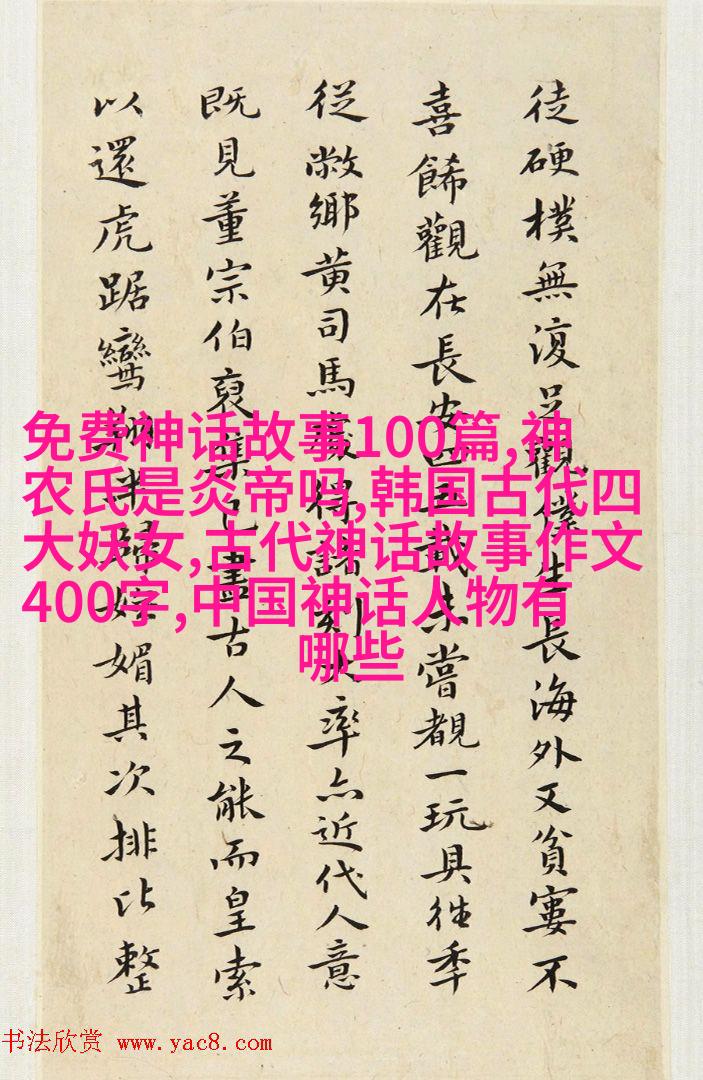 徒硬樸無復足觀僕生長海外又貧窶不
喜餙觀在長安四五載未嘗覩一玩具往季
從敝鄉黄司馬處得諸刻大率亦近代人意
既見董宗伯裒集乃盡古人之能而皇索
以還虎踞鸞婥媚其次排比整
免费神话故事100篇,神
农氏是炎帝吗,韩国古代四
大妖女,古代神话故事作文
400字,中国神话人物有
哪些
书法欣赏 www.yac8.com